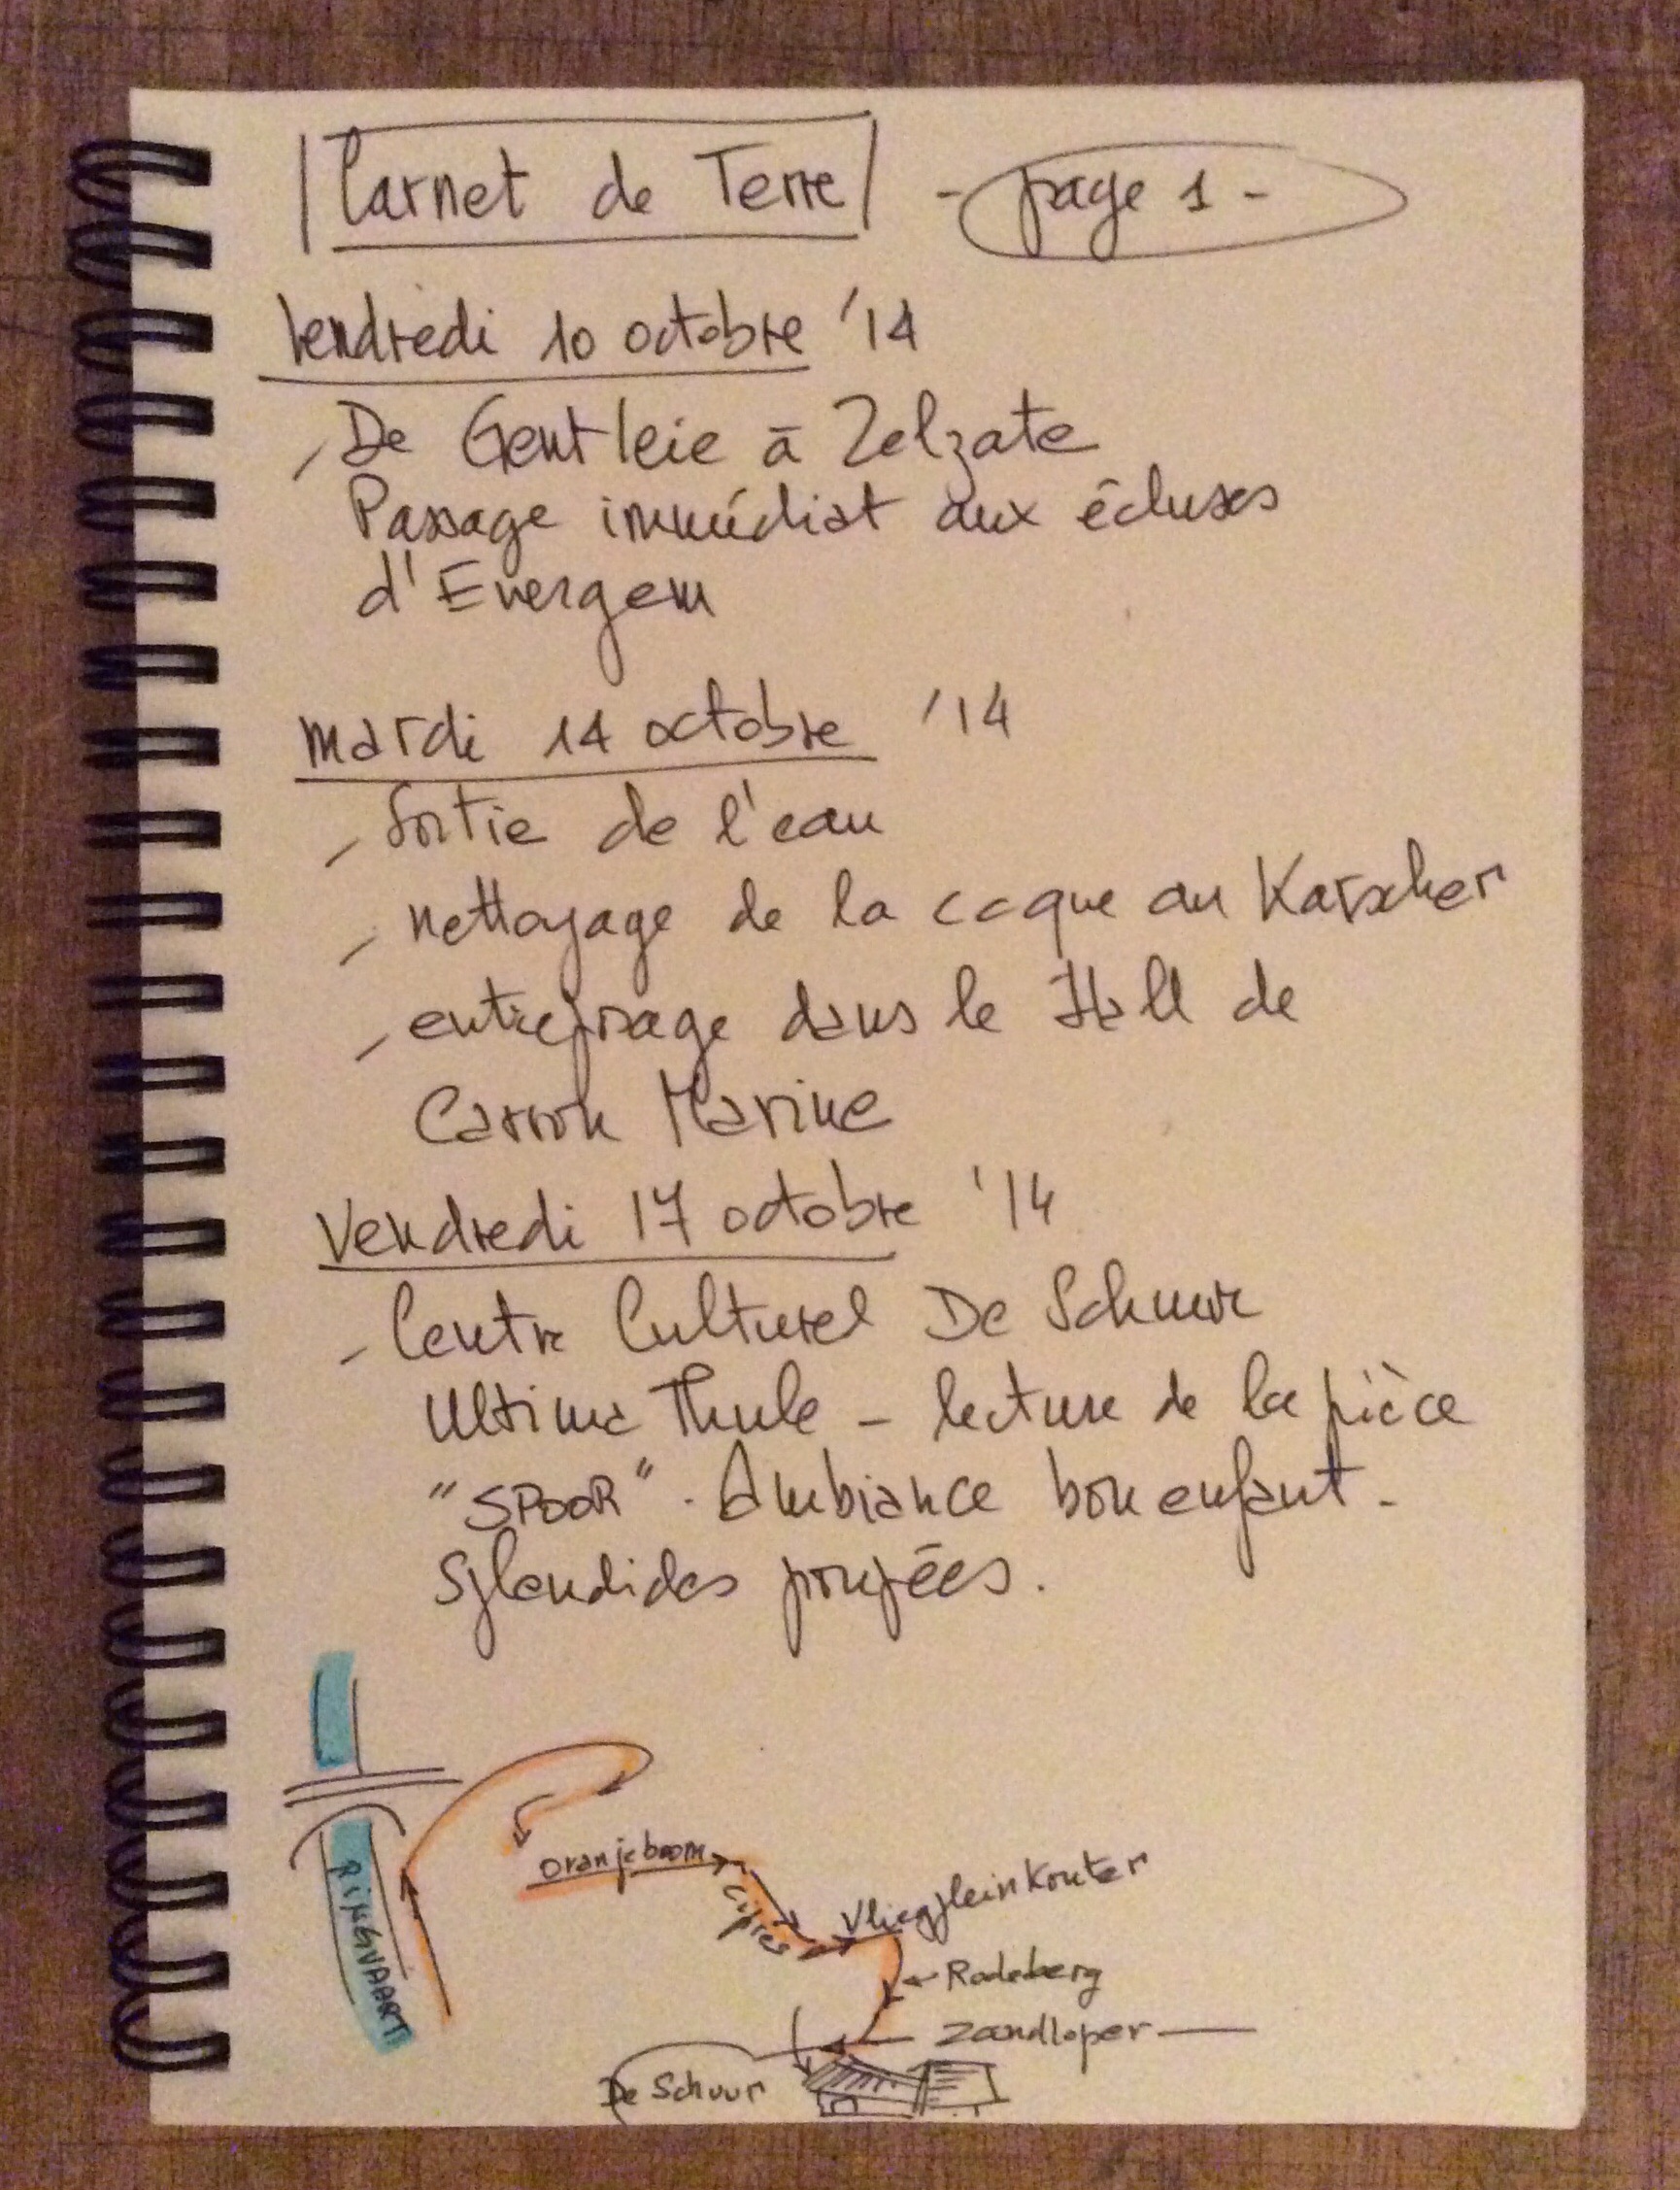 Carnet de Terre - page 1 -
Vendredi 10 octobre '14
De Gent leie à Zelzate
Passage immédiat aux écluses
d'Evergem
mardi 14 octobre '14
Sortie de l'eau
nettoyage de la coque au Karscher
entreposage dans le Hall de
Carron Marine
Vendredi 17 octobre '14
Centre Culturel De Schuur
Ultima Thule - lecture de la pièce
"SPOOR". Ambiance bon enfant.
Splendides poupées.
RINGVAART
Oranjeboom
Cipres
Vliegpleinkouter
Rodeberg
Zandloper
De Schuur